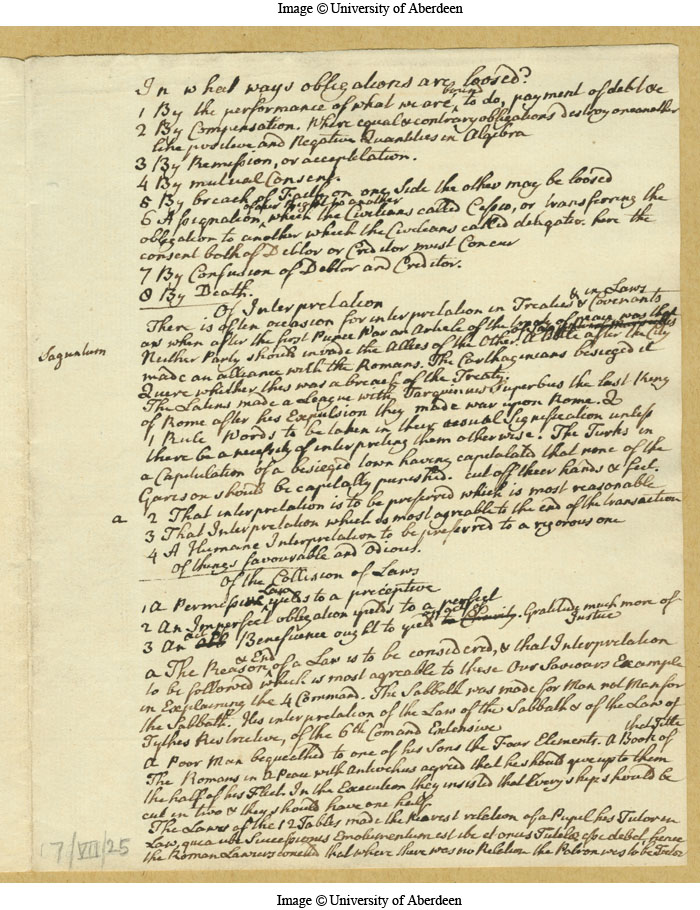 Image © University of Aberdeen
In what ways obligations are loosed?
1 By the performance of what we are bound to do, payment of debt &c
2 By Compensation. Where equal & contrary obligations destroy one another
like positive and Negative Quantities in Algebra
3 By Remission, or acceptilation.
4 By mutual Consent.
5 By breach of Faith on one Side the other may be loosed
6 Assignation of our Right to another which the Civilians called Cessio, or transferring the
obligation to another which the Civilians called delegatio. here the
consent both of Debtor or Creditor must Concur
7 By Confusion of Debtor and Creditor.
8 By Death.
Of Interpretation
There is often occasion for interpretation in Treaties & Covenants & in Laws
as when after the first Punic War an Article of the peace was that
Neither Party should invade the Allies of the Other. A little after the City
Saguntum
made an alliance with the Romans. The Carthaginians besieged it
Quere whether this was a breach of the Treaty.
The Latins made a League with Tarquinius Superbus the last King
of Rome after his Expulsion they made war upon Rome. Q
1 Rule Words to be taken in their usual Signification unless
there be a necessity of interpreting them otherwise. The Turks in
a Capitulation of a besieged town having capitulated that none of the
Garison should be capitally punished. cut off their hands & feet.
a 2 That interpretation is to be preferred which is most reasonable
3 That Interpretation which is most agreable to the end of the transaction
4 A Humane Interpretation to be preferred to a rigorous one
Of things favourable and Odious.
Of the Collision of Laws
1 A Permissive Law yields to a preceptive
2 An Imperfect obligation yields to a perfect
3 An act of Beneficence ought to yield to act of Gratitude much more of
Justice
a The Reason & End of a Law is to be considered, & that Interpretation
to be followed which is most agreeable to these Our Saviours Example
in Explaining the 4 Command. The Sabbath was made for Man not Man for
the Sabbath. His interpretation of the Law of the Sabbath & of the Law of
Tythes Restrictive, of the 6th Comand Extensive
A Poor Man bequeathed to one of his Sons the Four Elements. A Book of that Title
The Romans in a Peace with Antiochus agreed that he should give up to them
the half of his Fleet. In the Execution they insisted that Every ship should be
cut in two & they should have one half.
The Laws of the 12 Tables made the nearest relation of a Pupil his Tutor in
Law, quia ubi Successionis Emolumentum est ibi et onus Tutelæ esse debet, hence
the Roman Lawiers concluded that where there was no Relation the Patron was to be Tutor
7/VII/25
Image © University of Aberdeen